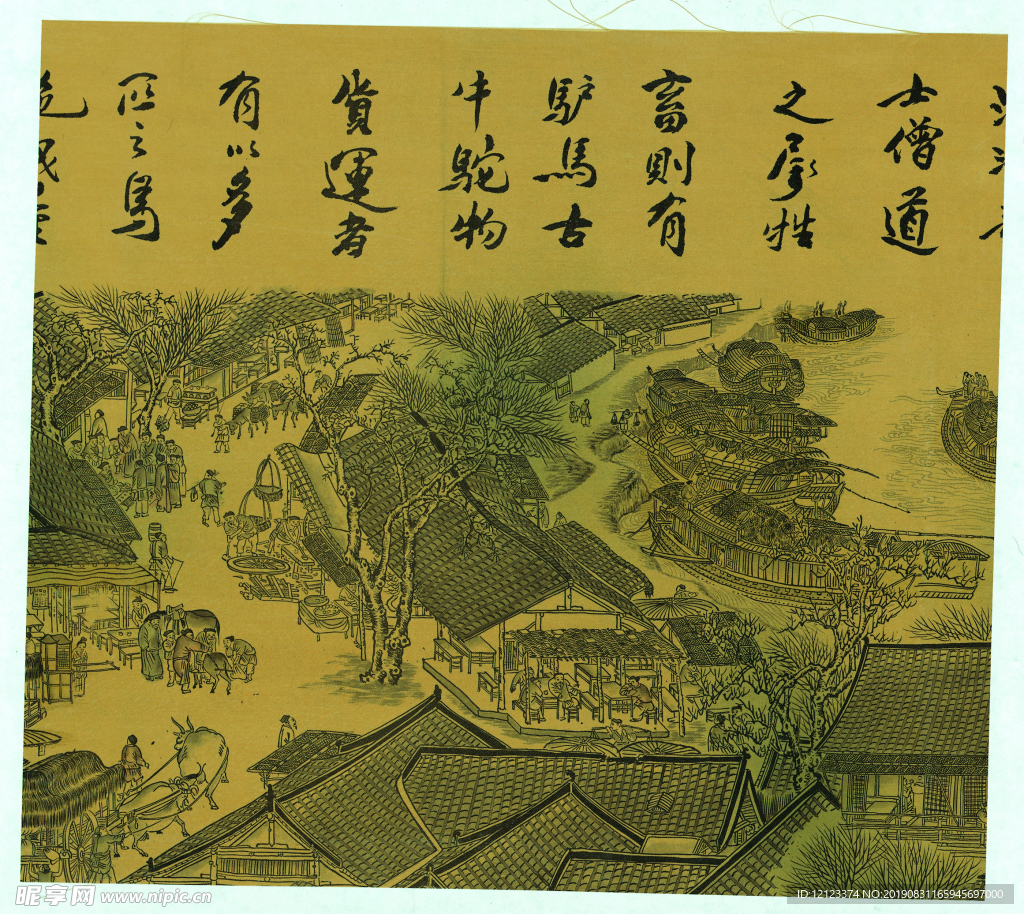 士僧道
之屬牲
畜則有
驴馬古
牛駝物
貨運者
有以多
昵享网 www.nipic.cn
ID:12123374 NO:20190831165945697000